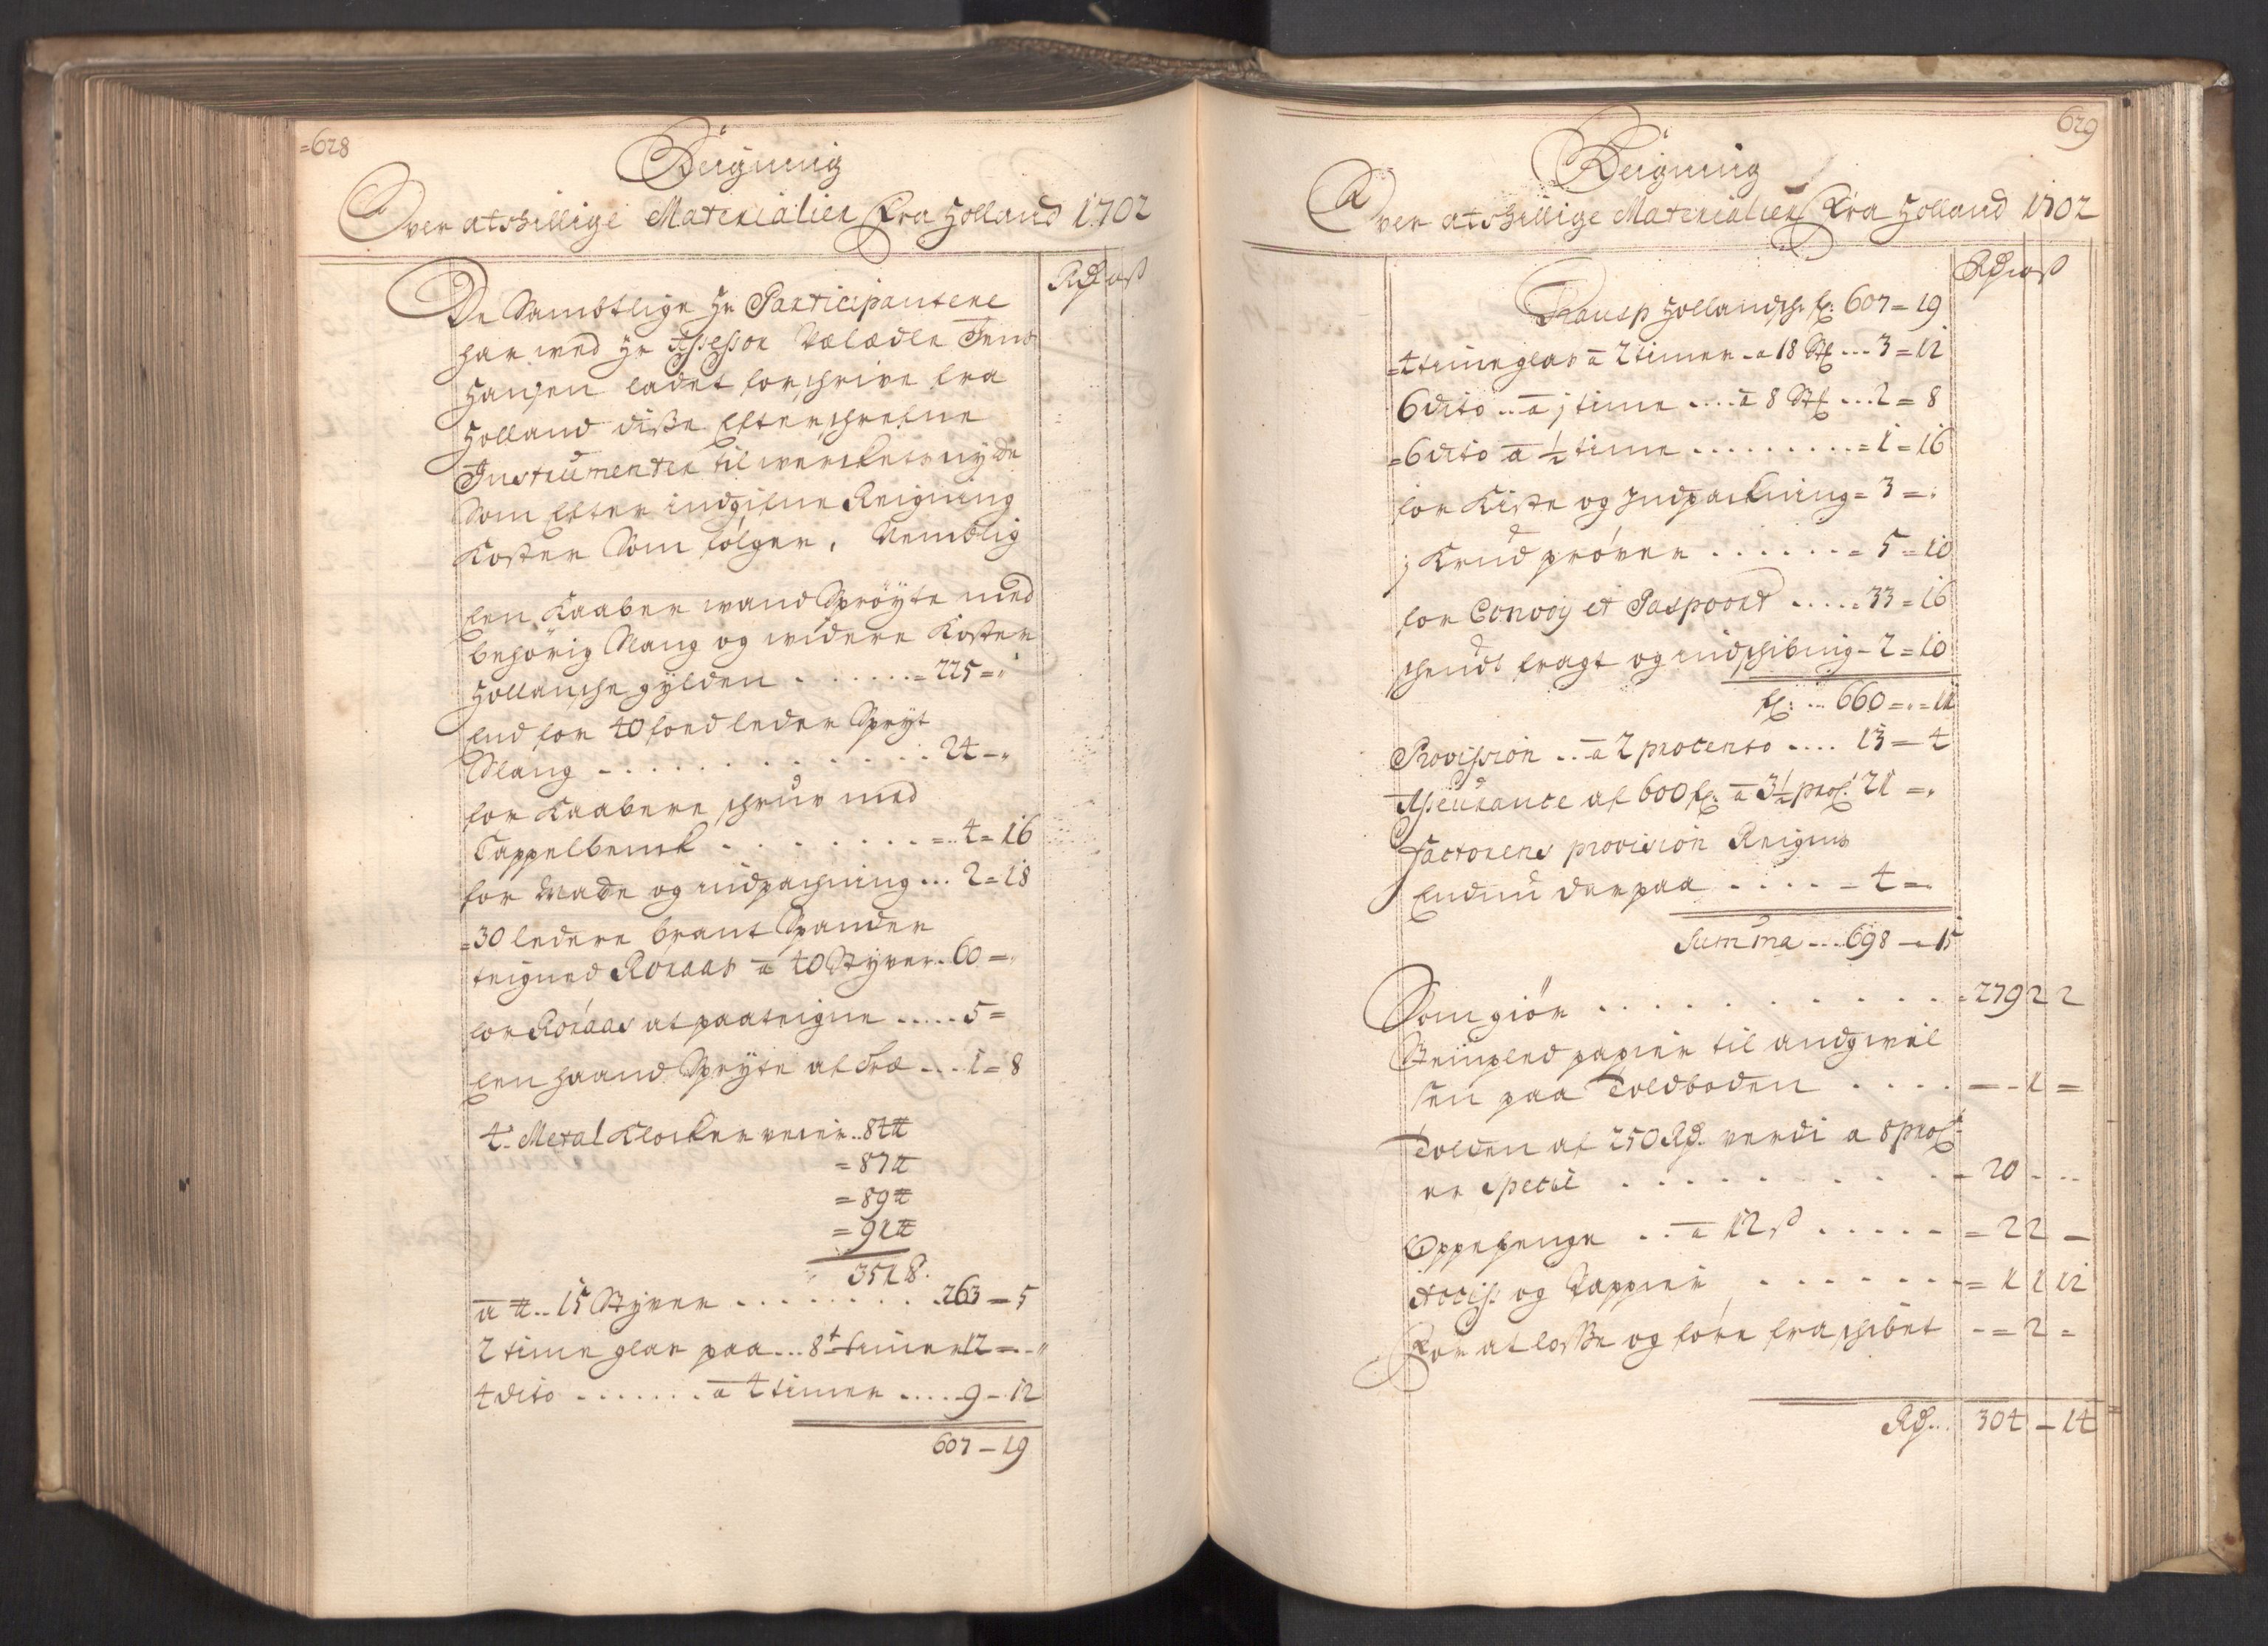 =628
Reigning
Over atskillige Materialier Fra Holland 1702
Rd ort ß
De Samblige Hr Participantere
har ved Hr Assessor Velædle Jens
Hansen ladet forschrive fra
Holland disse Efterschrefne
Instrumenter til werckets nytte
Som Efter indgifne Reigning
Koster Som følger, Nemblig
Een Kaaber wand Sprøyte med
behørig Slang og widere Koster
Hollansche gylden . . . . . . = 225 = "
End for 40 foed leder Spryt
Slang - . . . . . . . . . . . . 24 - "
for Kaabere schrue med
Tappelbenck . . . . . . . = 4 = 16
for Made og indpachning ... 2 = 18
=30 ledere brant Spander
teigned Röraas a 40 Styver. 60 = "
for Röraas at paateigne ..... 5 =
Een haand Spryte af Træ ... 1 = 8
4. Metal Klocker veier .. 84 ℔
= 87 ℔
= 89 ℔
= 91 ℔
351 ℔.
a ℔ .. 15 Styver . . . . . . . . . 263 = 5
2 time glas paa ... 8t timer 12 = - "
4 dito . . . . . . . a 4 timer .... 9 - 12
607 - 19
629
Reigning
Over atskillige Materialier Fra Holland 1702
Rd ort ß
Transp Hollandsch f: 607 = 19
=4 timeglas a 2 timer - a 18 Stf ... 3 = 12
6 dito .. a j time .... a 8 Stf ... 2 = 8
=6 dito a ½ time . . . . . . . . . = 1 = 16
for Kiste og Indpackning = 3 = :
j Krud prøver . . . . . . = 5 = 10
for Convoy et Paspoort ..... 33 = 16
schuds fragt og indschibning - 2 = 10
f: ... 660 = . = 11
Provission .. a 2 procento .... 13 - 4
Asseurance af 600 f: a 3½ proc: 21 = "
factorens provision Reigns
Endnu derpaa . . . . - 4 = "
Summa ... 698 - 15
Som giör . . . . . . . . . . . . = 279 2 2
Stempled papier til angivel
sen paa Toldboden . . . . = - 1 =
Tolden af 250 Rd. verdi a 8 proc:
er Specie . . . . . . . . . . - 20 - --
Oppepenge .. a 12 ß ..... = 2 2 -
Acciss og Pappier . . . . . . . = 1 1 12
For at losse og føre fra schibet - = 2 =
Rd... 304 - 14